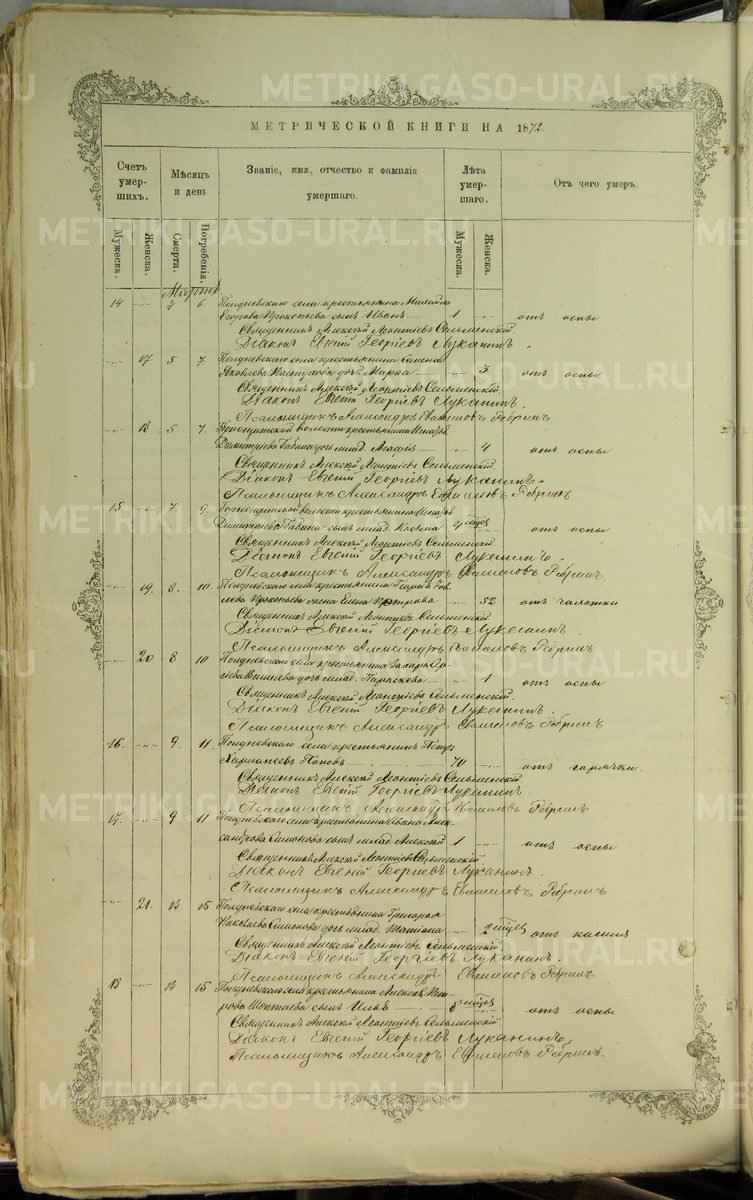 МЕТРИЧЕСКОЙ КНИГИ НА 1872
Счетъ умершихъ. Мѣсяцъ и день Званіе, имя, отчество и фамилія умершаго. Лѣта умершаго. Отъ чего умеръ.
Мужеска. Женска. Смерти. Погребенія. Мужеска. Женска.
Мартъ
14 -"- 4 6. Полдневскаго села крестьянина Михайла
Егорова Прокопьева сынъ Иванъ 1 -"- отъ оспы
Священникъ Алексѣй Леонтіевъ Сельменскій.
Діаконъ Евгеній Георгіевъ Луканинъ.
-"- 17 5 7 Полдневскаго села крестьянина Семена
Яковлева дочь Марфа -"- 3 отъ оспы
Священникъ Алексѣй Леонтіевъ Сельменскій.
Діаконъ Евгеній Георгіевъ Луканинъ.
Псаломщикъ Александръ Ребринъ
-"- 18 5 7. волости крестьянина
Димитріева Бабина дочь млад. -"- 4 отъ оспы
Священникъ Алексѣй Леонтіевъ Сельменскій
Діаконъ Евгеній Георгіевъ Луканинъ.
Псаломщикъ Александръ Ребринъ
15 -"- 7 9 волости крестьянина
Димитріева Бабина сынъ млад. Козьма 4 мѣсяц. -"- отъ оспы
Священникъ Алексѣй Леонтіевъ Сельменскій
Діаконъ Евгеній Георгіевъ Луканинъ.
Псаломщикъ Александръ Ребринъ.
-"- 19. 8. 10. Полдневскаго села крестьянина
Прокопьева жена Елена Петрова -"- 52 отъ чахотки
Священникъ Алексѣй Леонтіевъ Сельменскій
Діаконъ Евгеній Георгіевъ Луканинъ.
Псаломщикъ Александръ Ребринъ
-"- 20 8 10 Полдневскаго села крестьянина Захара
дочь млад. Параскева -"- 1 отъ оспы
Священникъ Алексѣй Леонтіевъ Сельменскій.
Діаконъ Евгеній Георгіевъ Луканинъ.
Псаломщикъ Александръ Ребринъ
16. -"- 9. 11 Полдневскаго села крестьянинъ Петръ
Поповъ 70 -"- отъ горячки.
Священникъ Алексѣй Леонтіевъ Сельменскій
Діаконъ Евгеній Георгіевъ Луканинъ.
Псаломщикъ Александръ Ребринъ
17. -"- 9 11 Полдневскаго села крестьянина Ивана Алек-
сандрова Симонова сынъ млад. Алексѣй 1 -"- отъ оспы
Священникъ Алексѣй Леонтіевъ Сельменскій
Діаконъ Евгеній Георгіевъ Луканинъ.
Псаломщикъ Александръ Ребринъ
-"- 21. 13 15 Полдневскаго села крестьянина Григорья
Николаева Симонова дочь млад. Татіана -"- 2 мѣсяц. отъ кашля
Священникъ Алексѣй Леонтіевъ Сельменскій
Діаконъ Евгеній Георгіевъ Луканинъ.
Псаломщикъ Александръ Ребринъ
18 -"- 13 15 Полдневскаго села крестьянина
сынъ Илья 8 мѣсяц. -"- отъ оспы
Священникъ Алексѣй Леонтіевъ Сельменскій
Діаконъ Евгеній Георгіевъ Луканинъ.
Псаломщикъ Александръ Ребринъ.
METRIKI.GASO-URAL.RU